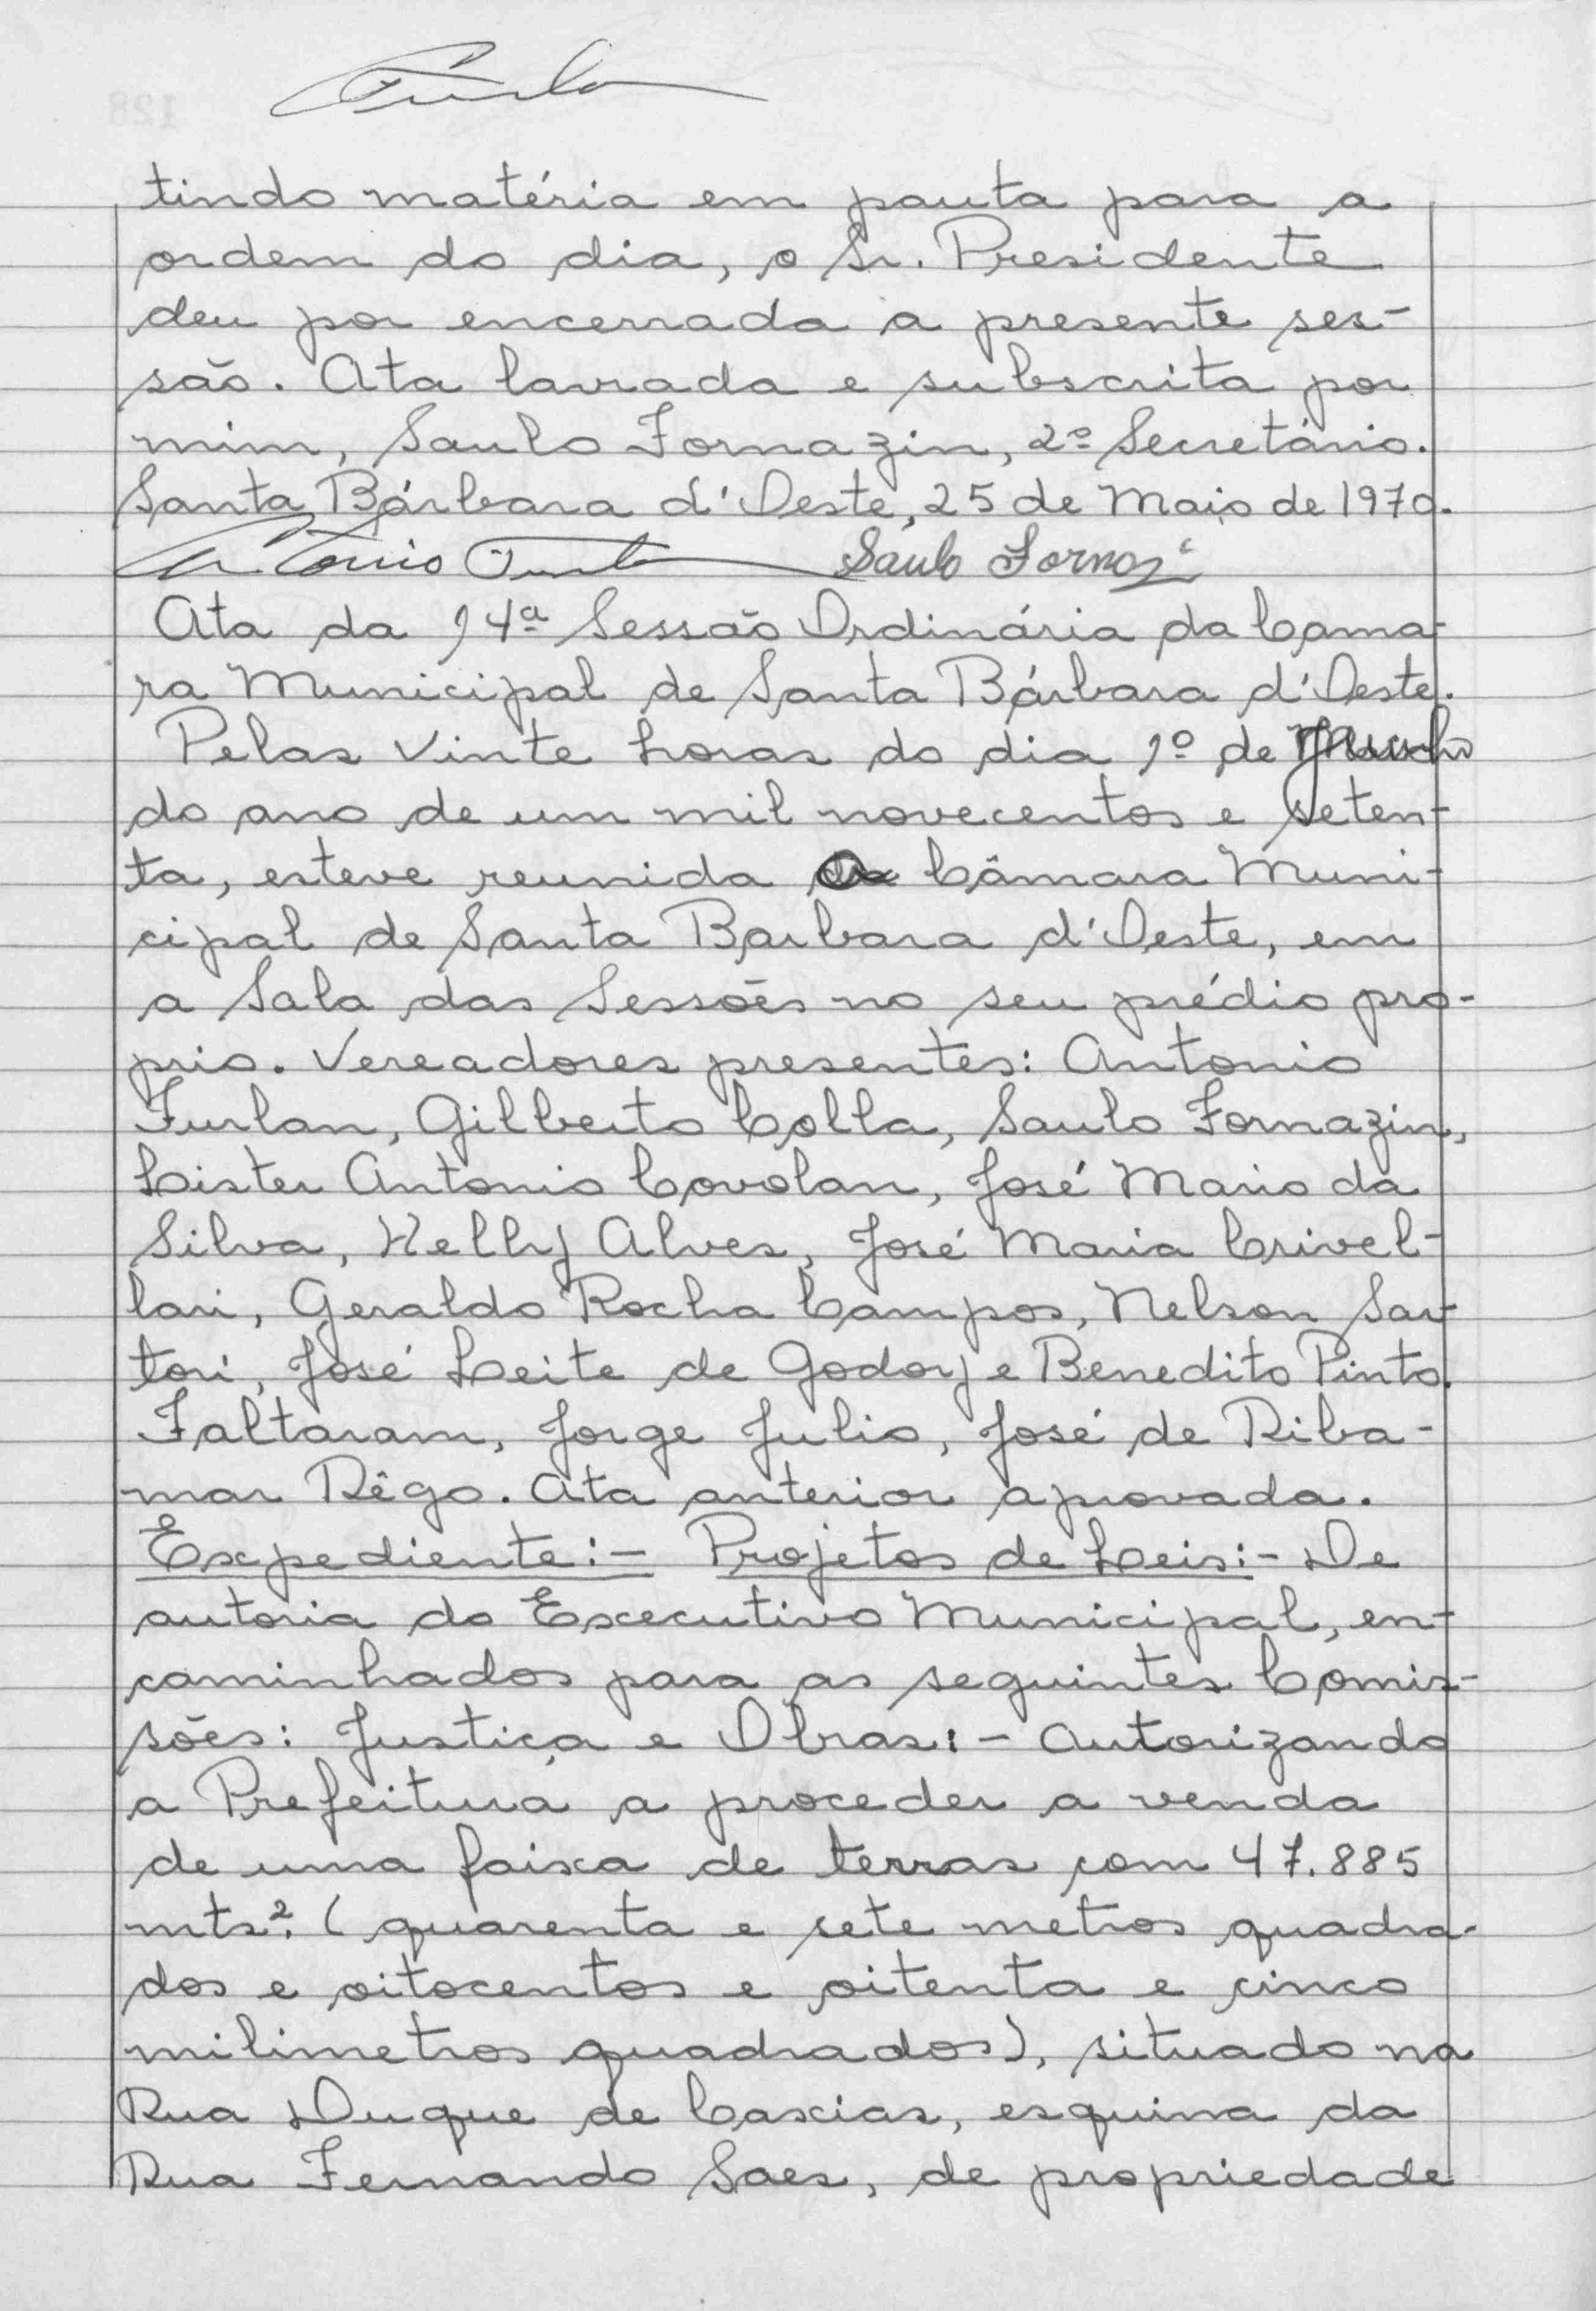 Furlan
tindo matéria em pauta para a
ordem do dia, o Sr. Presidente
deu por encerrada a presente ses-
são. Ata lavrada e subscrita por
mim, Saulo Fornazin, 2º Secretário.
Santa Bárbara d'Oeste, 25 de Maio de 1970.
Antonio Furlan Saulo Fornazi
Ata da 14ª Sessão Ordinária da Cama-
ra Municipal de Santa Bárbara d'Oeste.
Pelas vinte horas do dia 1º de Junho
do ano de um mil novecentos e seten-
ta, esteve reunida a Câmara Muni-
cipal de Santa Barbara d'Oeste, em
a Sala das Sessões no seu prédio pro-
prio. Vereadores presentes: Antonio
Furlan, Gilberto Colla, Saulo Fornazin,
Lister Antonio Covolan, José Mario da
Silva, Kelly Alves, José Maria Crivel-
lari, Geraldo Rocha Campos, Nelson Sar-
tori, José Leite de Godoy e Benedito Pinto.
Faltaram, Jorge Julio, José de Riba-
mar Rêgo. Ata anterior aprovada.
Expediente:- Projetos de Leis:- De
autoria do Executivo Municipal, en-
caminhados para as seguintes Comis-
sões: Justiça e Obras:- Autorizando
a Prefeitura a proceder a venda
de uma faixa de terras com 47.885
mts². (quarenta e sete metros quadra-
dos e oitocentos e oitenta e cinco
milimetros quadrados), situado na
Rua Duque de Caxias, esquina da
Rua Fernando Saes, de propriedade